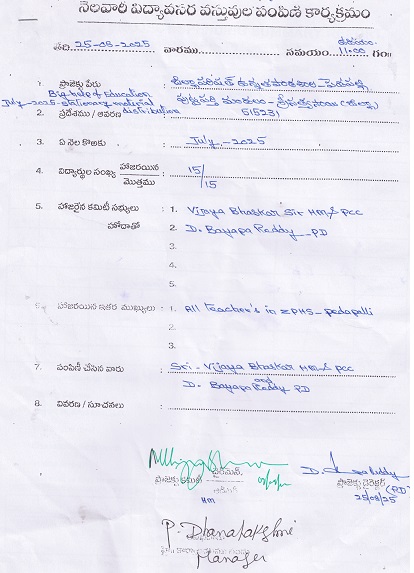 నెలవారీ విద్యావసర వస్తువుల పంపిణి కార్యక్రమం
తేది 25-08-2025 వారము సమయం ఉదయం 11:00 గం॥
1. ప్రాజెక్టు పేరు : జిల్లాపరిషత్ ఉన్నతపాఠశాల - పెదపల్లి
Big help of Education
పుట్టపర్తి మండలం - శ్రీసత్యసాయి (జిల్లా)
July-2025-stationary material distributions
2. ప్రదేశము / ఆవరణ : 515231
3. ఏ నెల కొఱకు : July - 2025
4. విద్యార్థుల సంఖ్య హాజరయిన : 15/
మొత్తము 15
5. హాజరైన కమిటీ సభ్యులు : 1. Vijaya Bhaskar Sir HM & PCC
హోదాతో 2. D. Bayapa Reddy - PD
3.
4.
5.
6. హాజరయిన ఇతర ముఖ్యులు : 1. All teacher's in ZPHS - pedapalli
2.
3.
7. పంపిణీ చేసిన వారు : Sri. Vijaya Bhaskar HM & PCC
and
D. Bayapa Reddy PD
8. వివరణ / సూచనలు :
ఛైర్మెన్,
ప్రాజెక్టు కమిటీ
HM
ప్రాజెక్టు డైరెక్టర్
(PD)
25/08/25
P. Dhanalakshmi
Manager